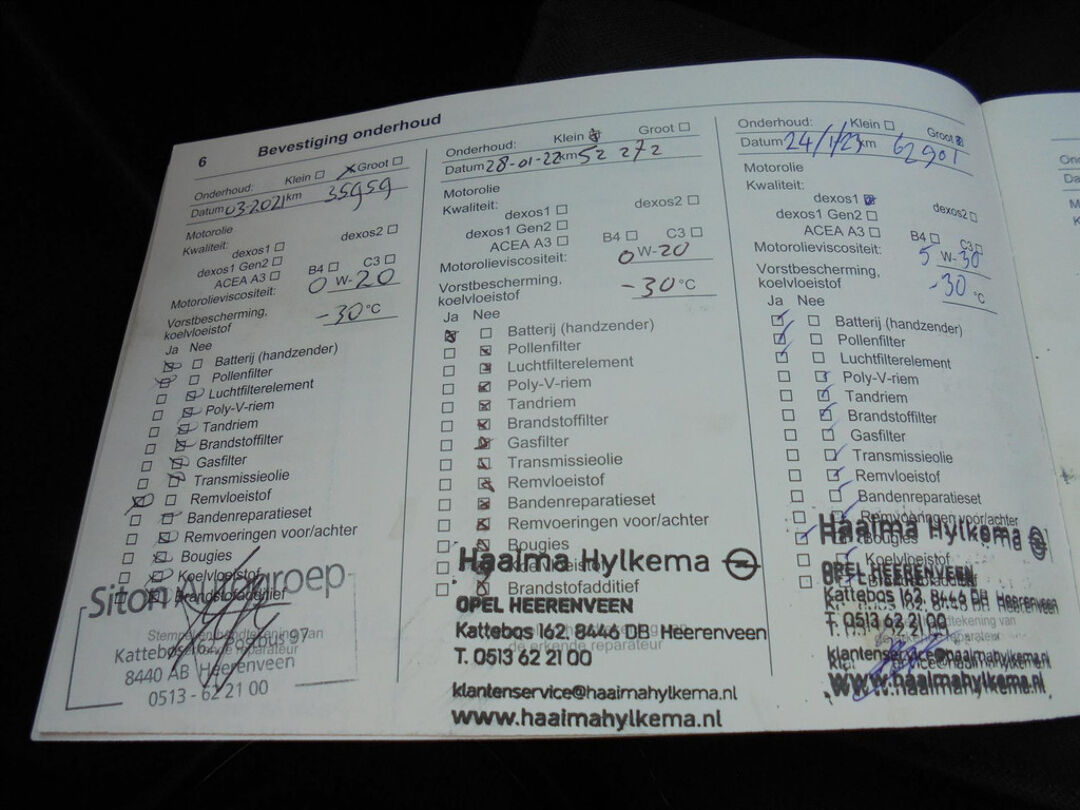 6 Bevestiging onderhoud
Onderhoud: Klein Groot
Datum 03-2021 km 35959
Motorolie
Kwaliteit: dexos1 dexos2
dexos1 Gen2
ACEA A3 B4 C3
Motorolieviscositeit: 0 W-20
Vorstbescherming,
koelvloeistof -30 °C
Ja Nee
Batterij (handzender)
Pollenfilter
Luchtfilterelement
Poly-V-riem
Tandriem
Brandstoffilter
Gasfilter
Transmissieolie
Remvloeistof
Bandenreparatieset
Remvoeringen voor/achter
Bougies
Koelvloeistof
Brandstofadditief
Siton groep
Stempel en handtekening van
reparateur
Kattebos 162 Postbus 97
8440 AB Heerenveen
0513 - 62 21 00
Onderhoud: Klein Groot
Datum 28-01-22 km 52 272
Motorolie
Kwaliteit:
dexos1 dexos2
dexos1 Gen2
ACEA A3 B4 C3
Motorolieviscositeit: 0 W-20
Vorstbescherming,
koelvloeistof -30 °C
Ja Nee
Batterij (handzender)
Pollenfilter
Luchtfilterelement
Poly-V-riem
Tandriem
Brandstoffilter
Gasfilter
Transmissieolie
Remvloeistof
Bandenreparatieset
Remvoeringen voor/achter
Bougies
Haaima Hylkema
Koelvloeistof
Brandstofadditief
OPEL HEERENVEEN
Kattebos 162. 8446 DB Heerenveen
de erkende reparateur
T. 0513 62 21 00
klantenservice@haaimahylkema.nl
www.haaimahylkema.nl
Onderhoud: Klein Groot
Datum 24/1/23 km 62901
Motorolie
Kwaliteit:
dexos1 dexos2
dexos1 Gen2
ACEA A3 B4 C3
Motorolieviscositeit: 5 W-30
Vorstbescherming,
koelvloeistof -30 °C
Ja Nee
Batterij (handzender)
Pollenfilter
Luchtfilterelement
Poly-V-riem
Tandriem
Brandstoffilter
Gasfilter
Transmissieolie
Remvloeistof
Bandenreparatieset
Remvoeringen voor/achter
Haaima Hylkema
Bougies
Koelvloeistof
OPEL HEERENVEEN
Kattebos 162. 8446 DB Heerenveen
T. 0513 62 21 00
klantenservice@haaimahylkema.nl
www.haaimahylkema.nl